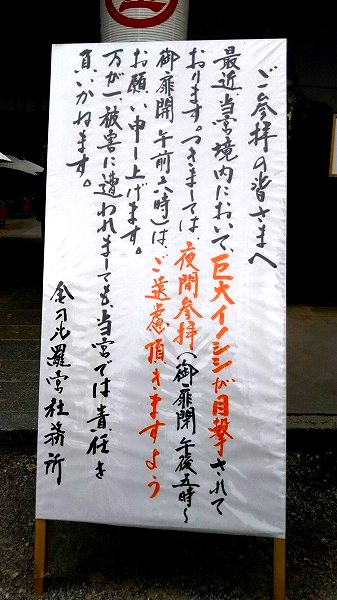 ご参拝の皆さまへ
最近当宮境内において、巨大イノシシが目撃されて
おります。つきましては、夜間参拝（御扉閉 午後五時～
御扉開 午前六時）は、ご遠慮頂きますよう
お願い申し上げます。
万が一、被害に遭われましても、当宮では責任を
負いかねます。
金刀比羅宮社務所